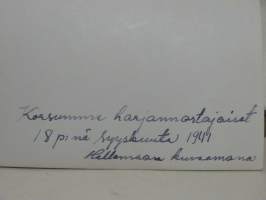 Korsumme harjannostajaiset
18 p:nä Syyskuuta 1941
Hellemaan kuvaamana